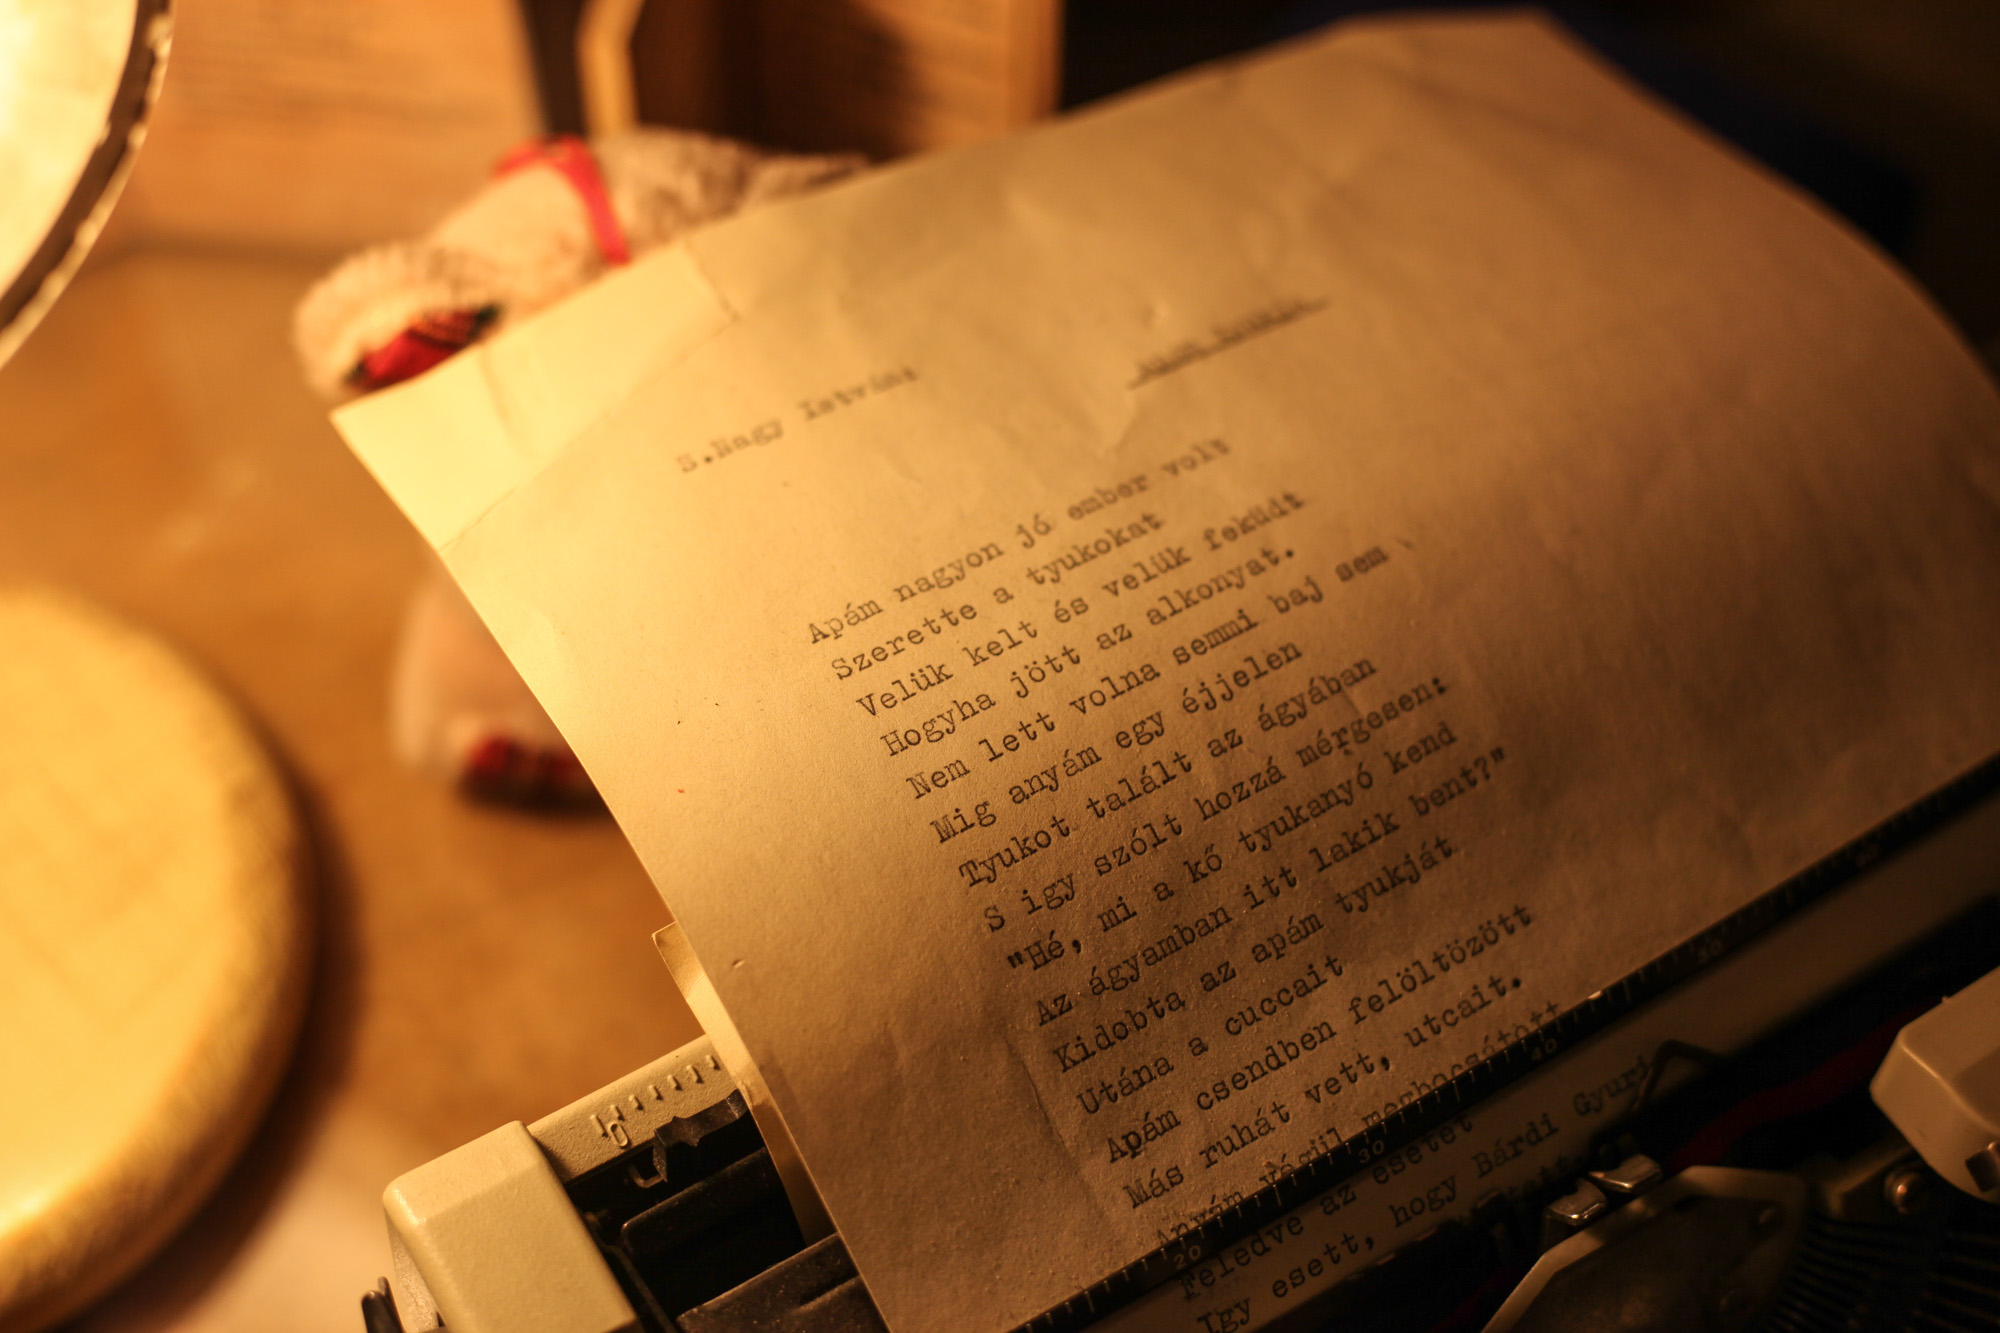 S.Nagy István:
Apám nagyon jó ember volt
Szerette a tyukokat
Velük kelt és velük feküdt
Hogyha jött az alkonyat.
Nem lett volna semmi baj sem
Mig anyám egy éjjelen
Tyukot talált az ágyában
S igy szólt hozzá mérgesen:
"Hé, mi a kő tyukanyó kend
Az ágyamban itt lakik bent?"
Kidobta az apám tyukját
Utána a cuccait
Apám csendben felöltözött
Más ruhát vett, utcait.
Anyám végül megbocsátott
Feledve az esetet
Igy esett, hogy Bárdi Gyuri
10
20
30
40
50
60